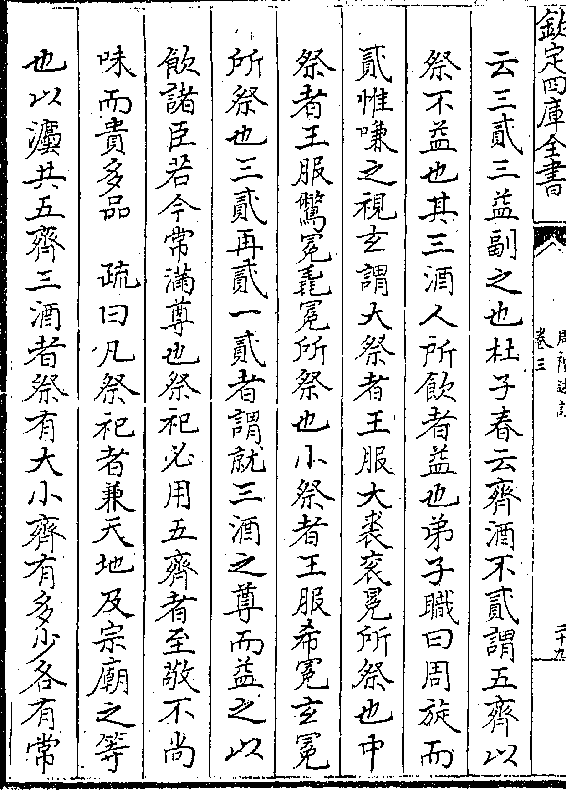 欽定四庫全書
卷三
云三貳三益副之也杜子春云齊酒不貳謂五齊以
祭不益也其三酒人所飲者益也弟子職曰周旋而
貳惟嗛之視玄謂大祭者王服大裘衮冕所祭也中
祭者王服鷩冕毳冕所祭也小祭者王服希冕玄冕
所祭也三貳再貳一貳者謂就三酒之尊而益之以
飲諸臣若今常滿尊也祭祀必用五齊者至敬不尚
味而貴多品　疏曰凡祭祀者兼天地及宗廟之等
也以灋共五齊三酒者祭有大小齊有多少各有常